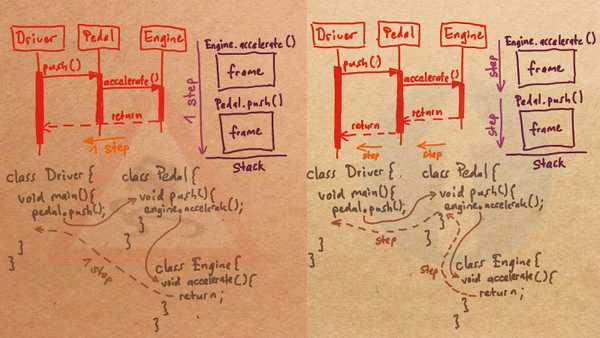 Driver Pedal Engine
push()
accelerate()
return
1 step
Engine.accelerate()
frame
Pedal.push()
frame
Stack
1 step
class Driver {
void main(){
pedal.push();
}
}
class Pedal {
void push(){
engine.accelerate();
}
}
1 step
class Engine {
void accelerate(){
return;
}
}
Driver Pedal Engine
push()
accelerate()
return
return
step step
Engine.accelerate()
frame
Pedal.push()
frame
Stack
step
step
class Driver {
void main(){
pedal.push();
}
}
class Pedal {
void push(){
engine.accelerate();
}
}
step
step
class Engine {
void accelerate(){
return;
}
}